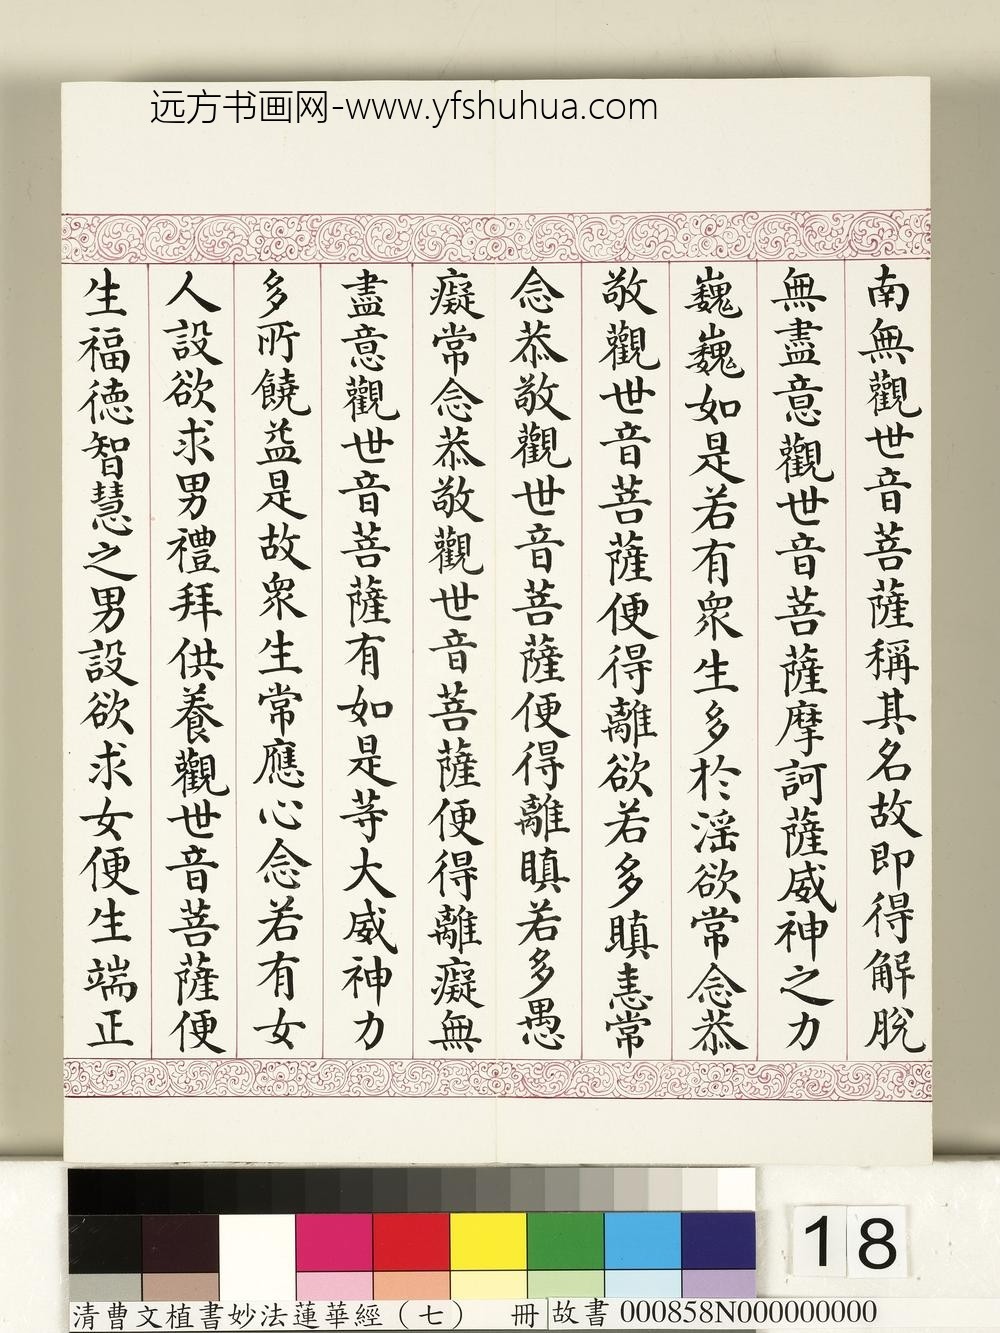 远方书画网-www.yfshuhua.com
南無觀世音菩薩稱其名故即得解脫
無盡意觀世音菩薩摩訶薩威神之力
巍巍如是若有眾生多於淫欲常念恭
敬觀世音菩薩便得離欲若多瞋恚常
念恭敬觀世音菩薩便得離瞋若多愚
癡常念恭敬觀世音菩薩便得離癡無
盡意觀世音菩薩有如是等大威神力
多所饒益是故眾生常應心念若有女
人設欲求男禮拜供養觀世音菩薩便
生福德智慧之男設欲求女便生端正
18
清曹文植書妙法蓮華經（七） 冊 故書 000858N000000000